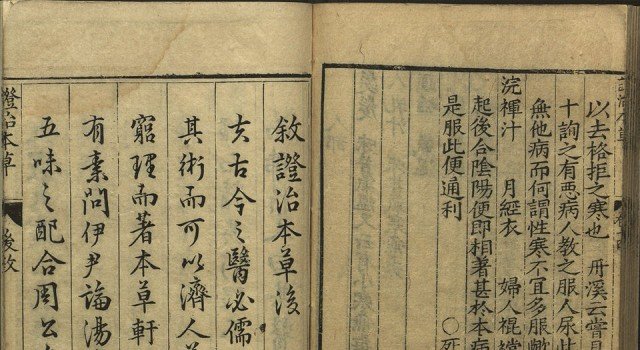 以去格拒之寒也 丹溪云嘗見
十詢之有惡病人教之服人尿此
無他病而何謂性寒不宜多服歟
浣褌汁 月經衣 婦人裩襠
起後合陰陽便即相著甚於本病
是服此便通利 〇死
證治本草
敘證治本草後
夫古今之醫必儒
其術而可以濟人
窮理而著本草軒
有素問伊尹論湯
五味之配合周公
證治本草 後敘